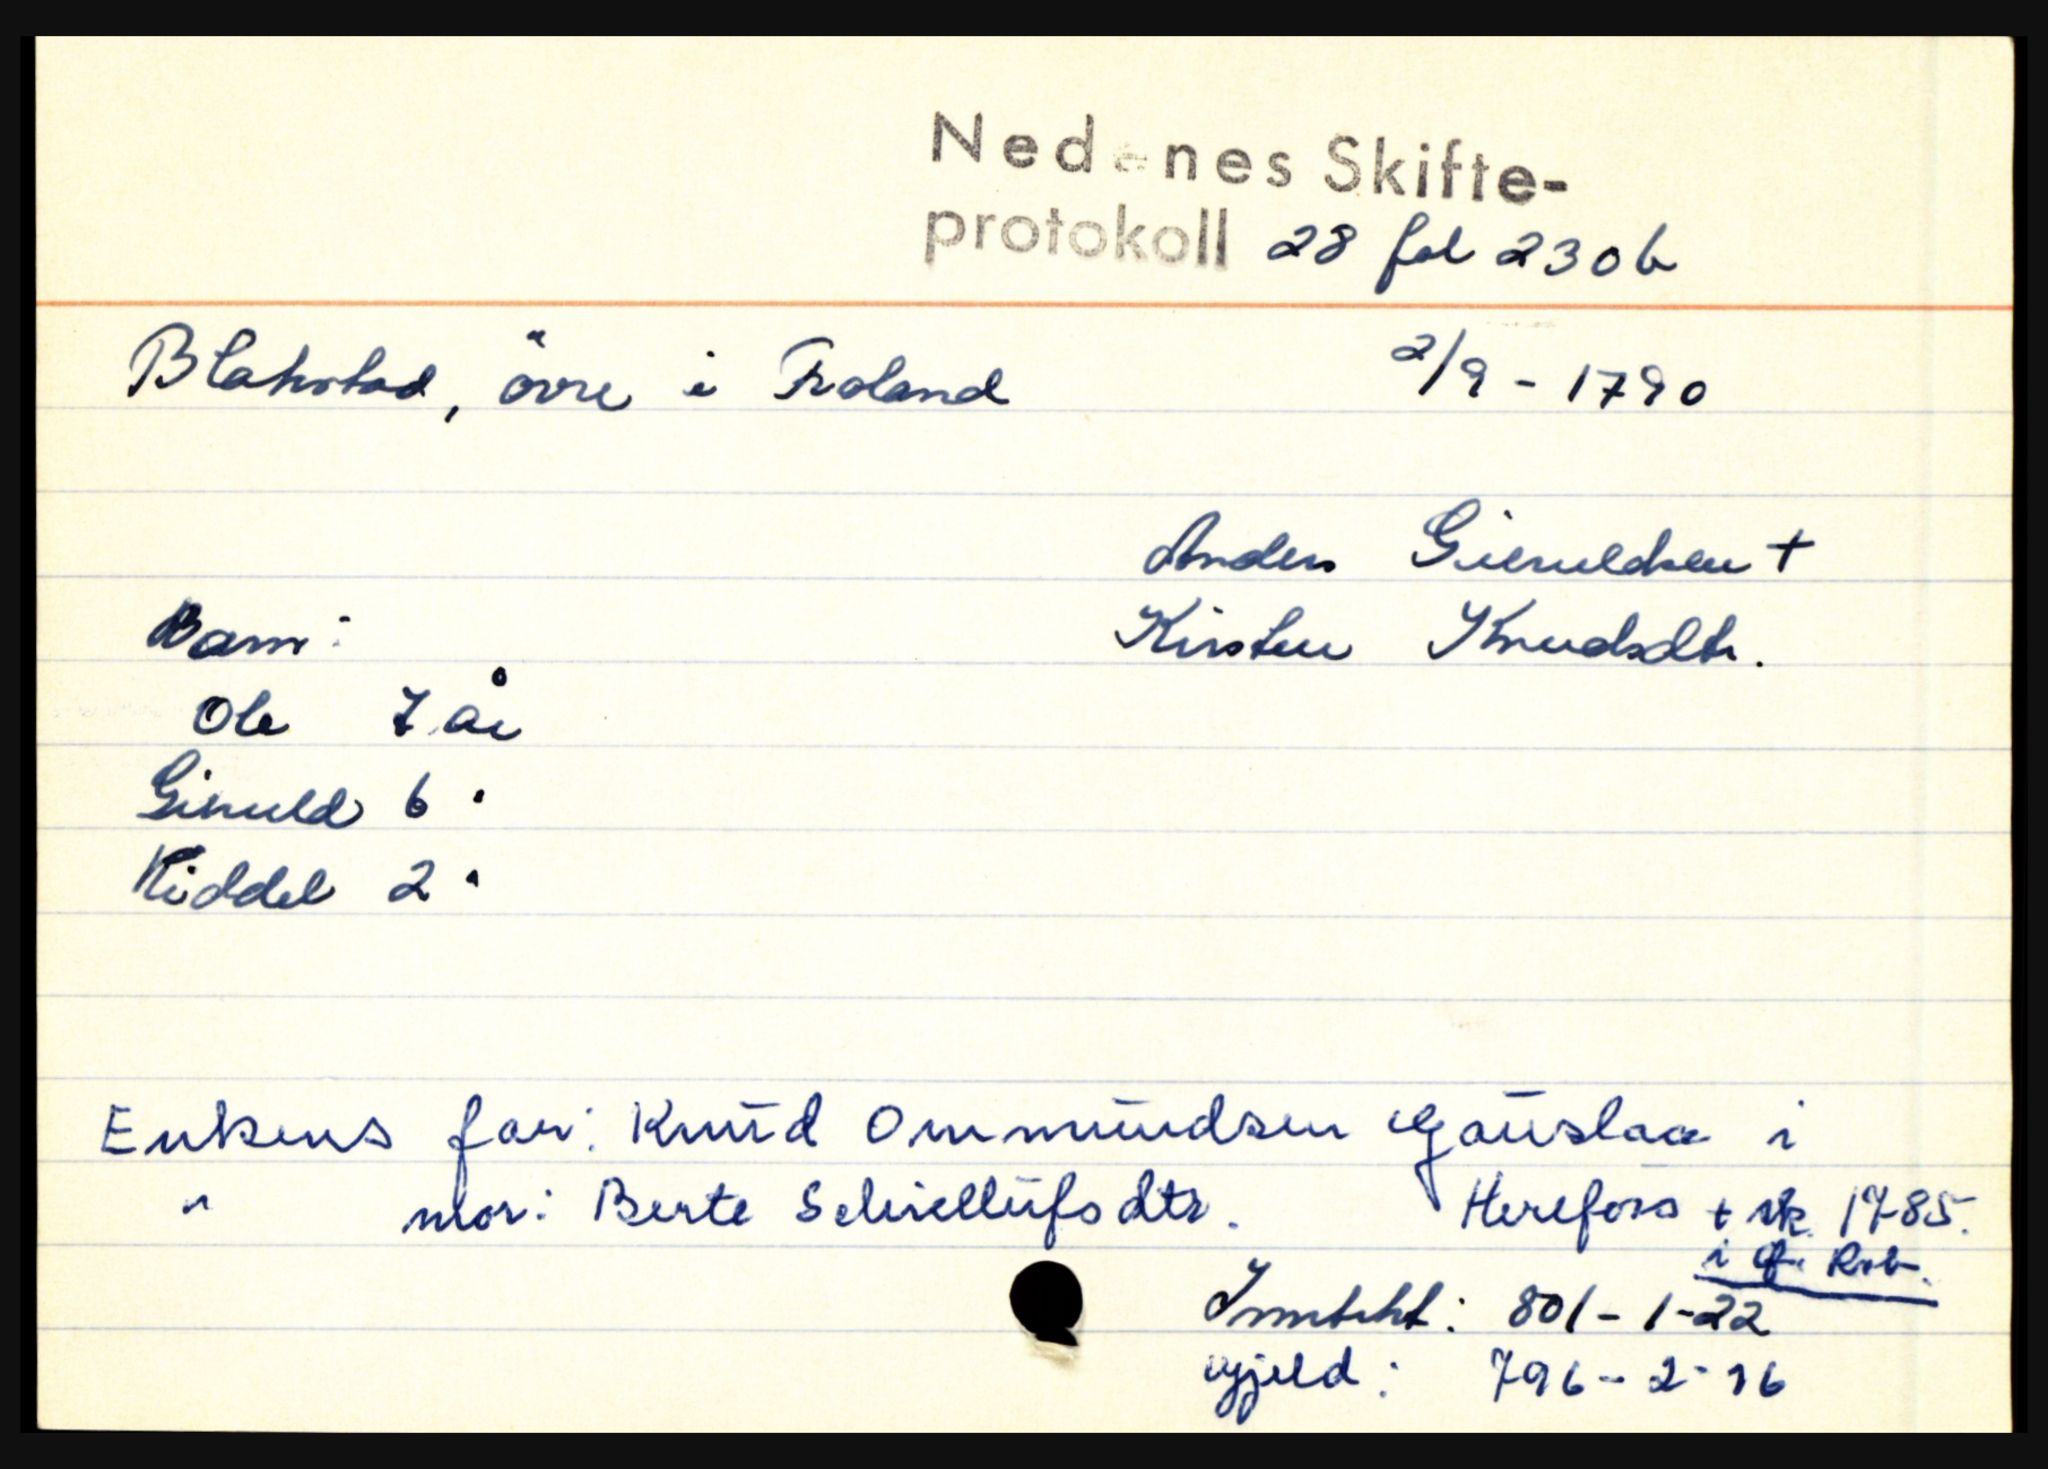 Nedenes Skifte-
protokoll 28 fol 230b
Blakstad, övre i Froland 2/9 - 1790
Anders Gieruldsen +
Barn: Kirsten Knudsdtr.
Ole 7 år
Gieruld 6 "
Kiddel 2 "
Enkens far: Knud Ommundsen Gauslaa i
" mor: Berte Schiellufsdtr. Herefoss + sk. 1785.
i Rob.
Inntekt: 801 - 1-22
Gjeld: 796 - 2-16